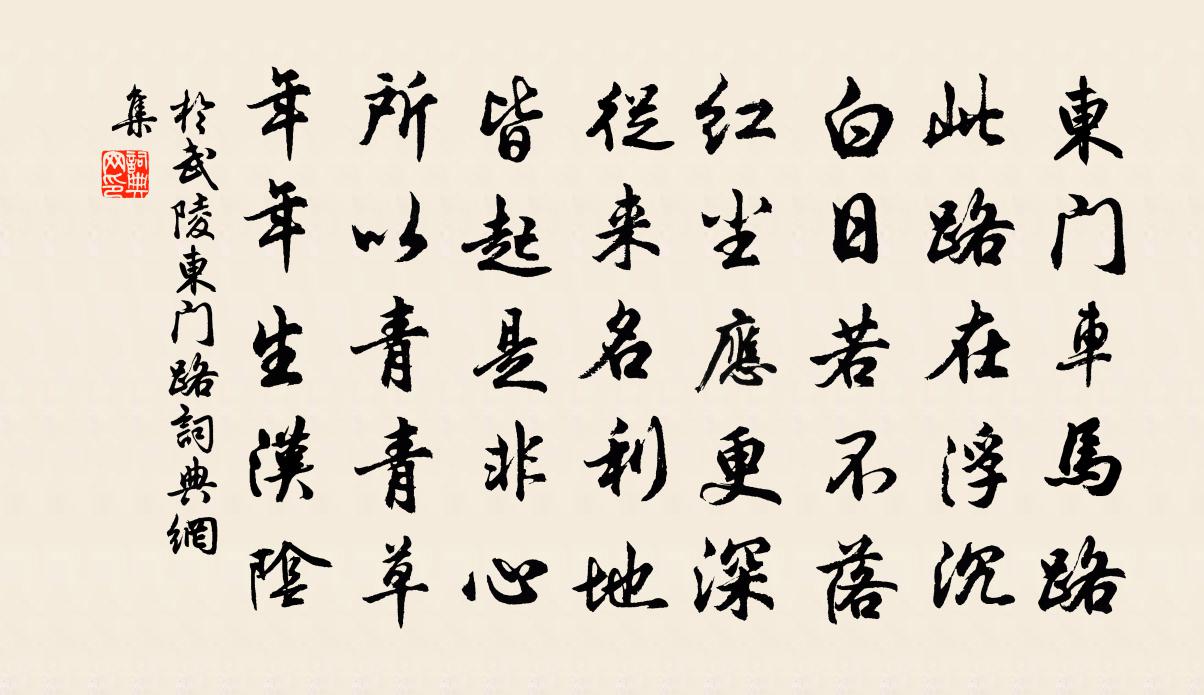 東门車馬路
此路在浮沉
白日若不落
红尘應更深
從来名利地
皆起是非心
所以青青草
年年生漢陰
於武陵東门路詞典網
集
詞典网印